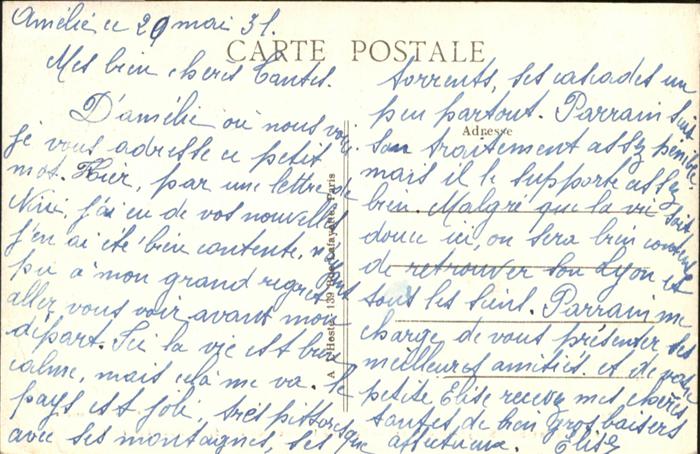 Amélie ce 29 mai 31.
CARTE POSTALE
Mes bien chères Tantes.
D'amélie où nous
je vous adresse ce petit
mot. Hier, par une lettre de
Nini, j'ai eu de vos nouvelles
j'en ai été bien contente,
pu à mon grand regret
aller vous voir avant mon
départ. Ici la vie est bien
calme, mais celà me va. le
pays est joli, très pittoresque
avec ses montagnes, ses
torrents, ses cascades un
peu partout. Parrain suit
Adresse
son traitement assez pénible
mais il le supporte assez
bien. Malgré que la vie soit
douce ici, on sera bien contente
de retrouver son Lyon et
tous les siens. Parrain me
charge de vous présenter ses
meilleures amitiés, et de votre
petite Elise recevez mes chères
tantes de bien gros baisers
affectueux. Elise
A. L'Hoste, 139 Rue Lafayette, Paris